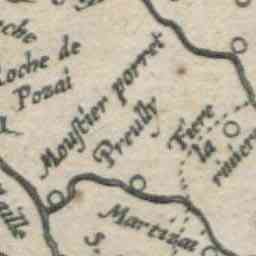 Roche de
Pozai
Moustier porret
Preully
Tierre
la
riviere
Martizai
S.